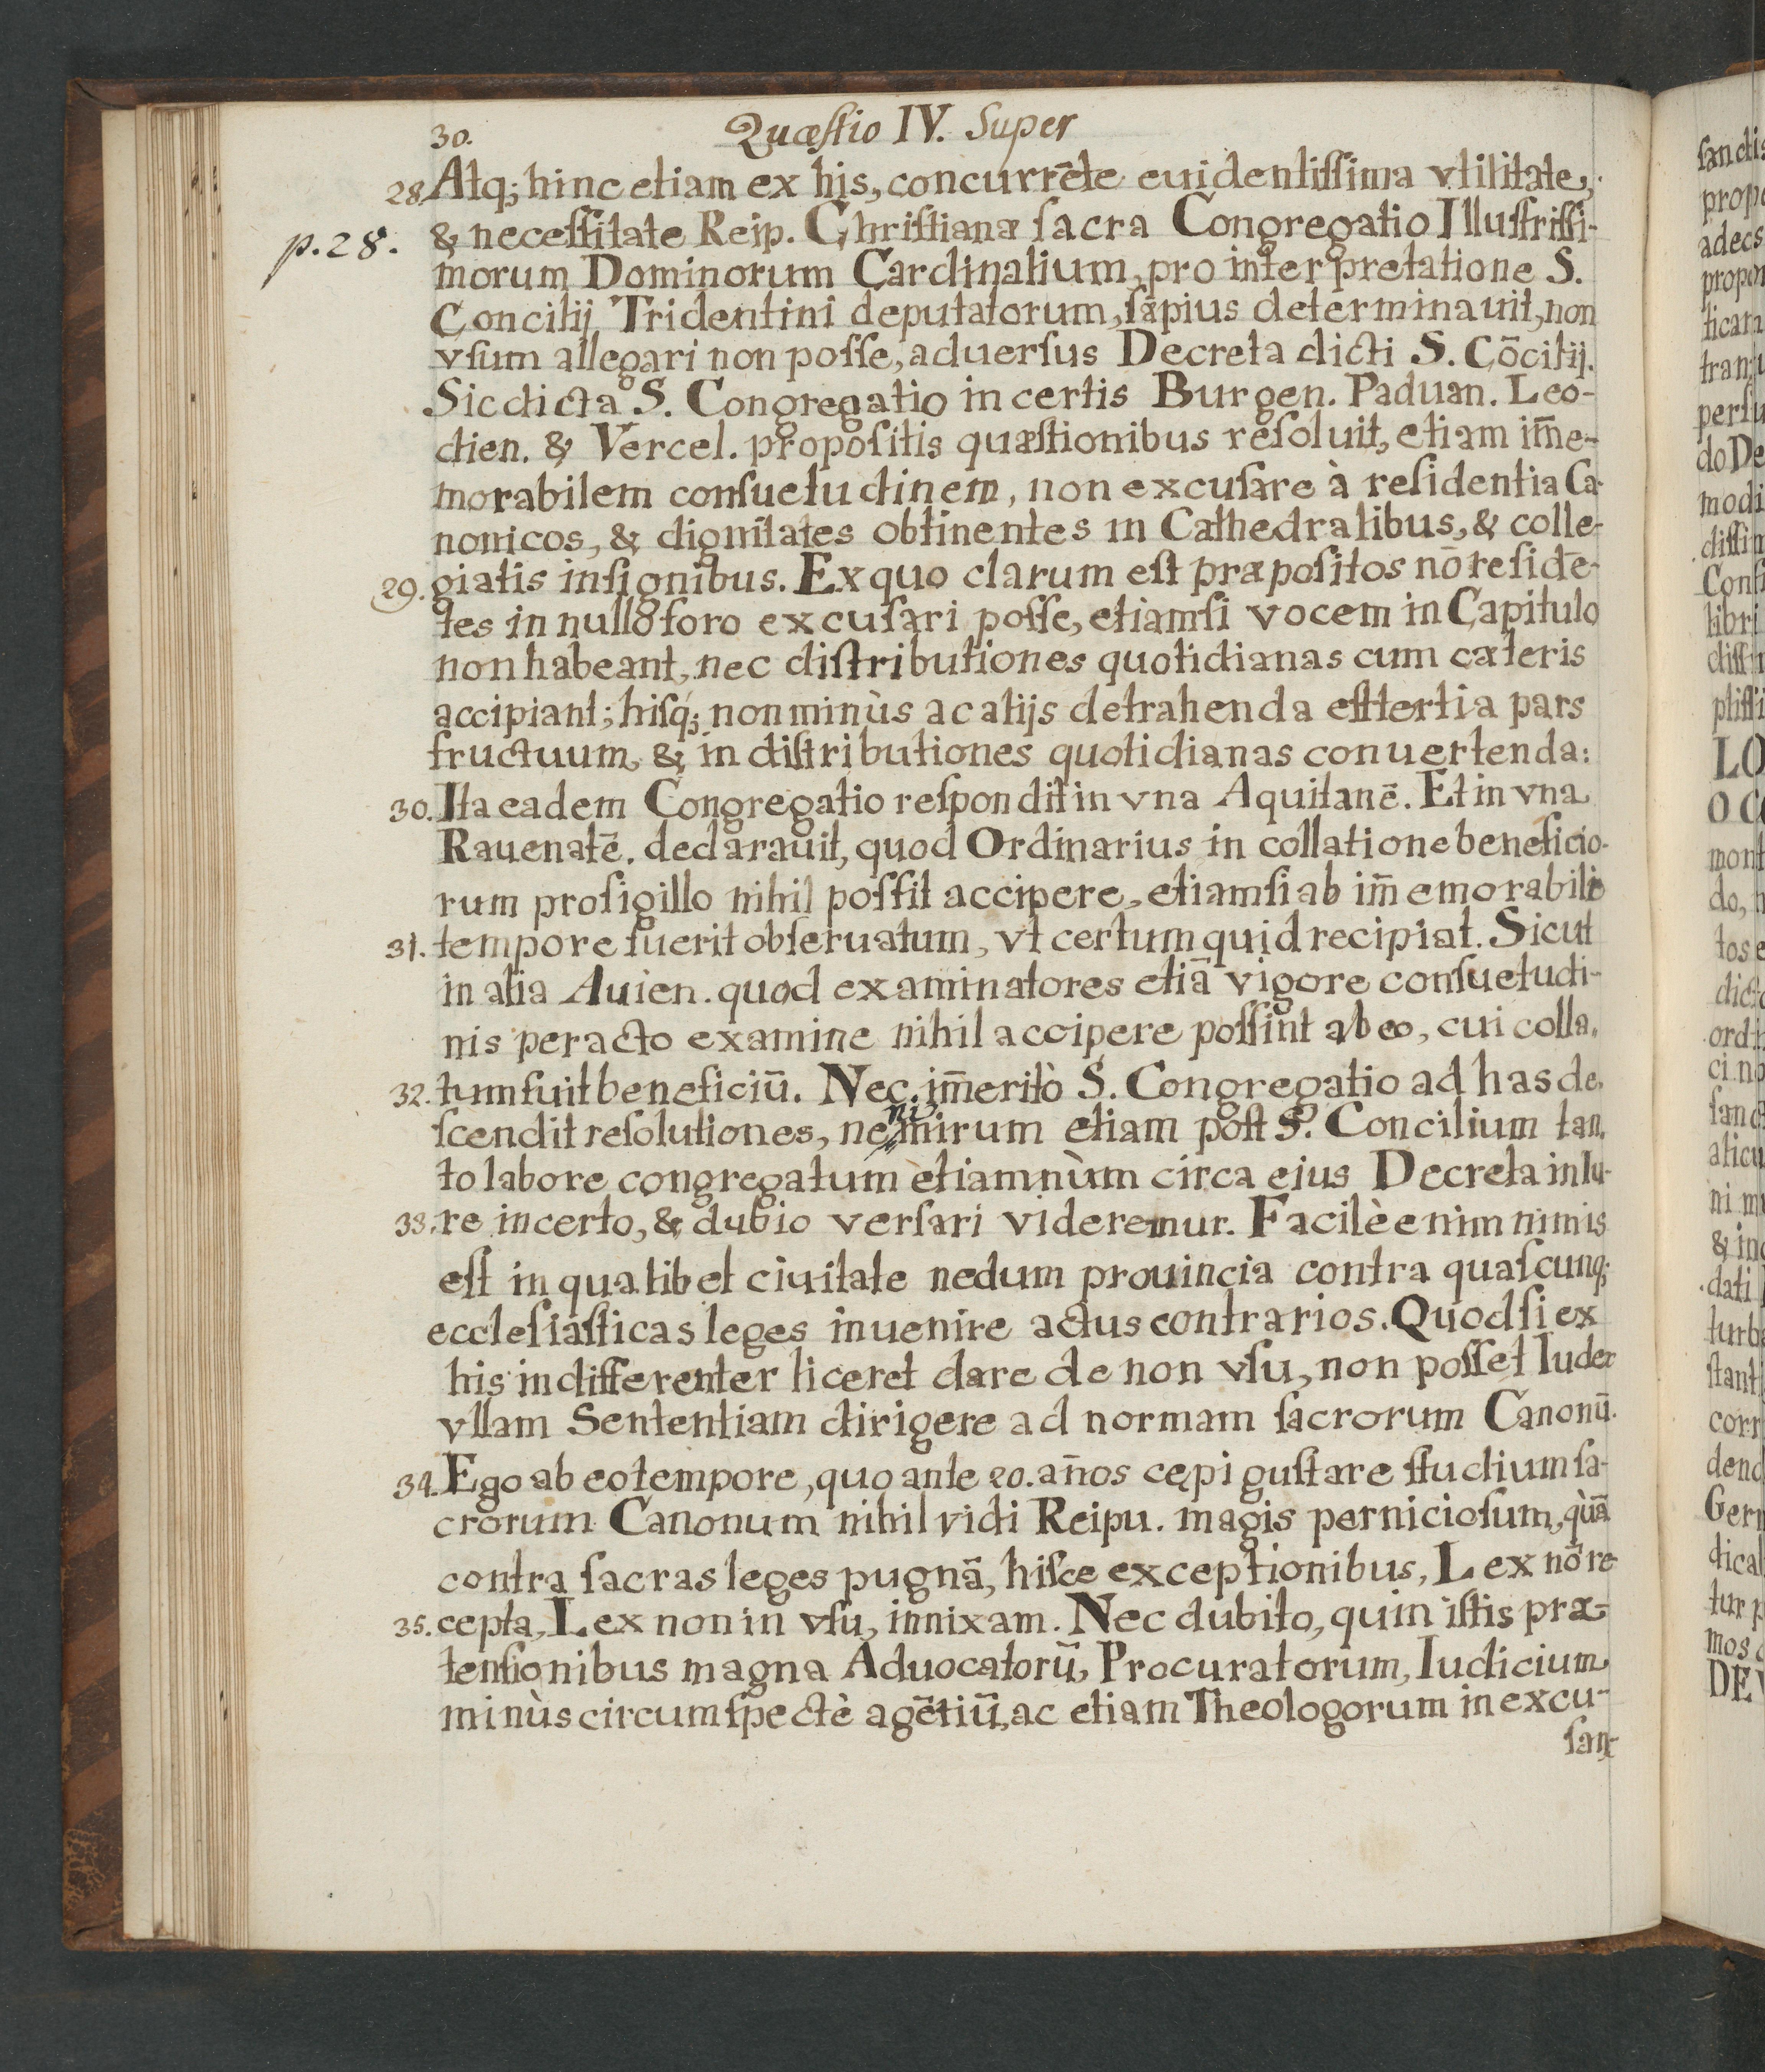 30.
Quæſtio IV. Super
28. Atq; hinc etiam ex his, concurrēte euidentiſſima vtilitate,
p. 28.
& neceſſitate Reip. Chriſtianæ ſacra Congregatio Illuſtriſſi-
morum Dominorum Cardinalium, pro interpretatione S.
Concilij Tridentini deputatorum, ſæpius determinauit, non
vſum allegari non poſſe, aduerſus Decreta dicti S. Cōcilij.
Sic dicta S. Congregatio in certis Burgen. Paduan. Leo-
dien. & Vercel. propoſitis quæſtionibus reſoluit, etiam im̄e-
morabilem conſuetudinem, non excuſare à reſidentia Ca-
nonicos, & dignitates obtinentes in Cathedralibus, & colle-
29. giatis inſignibus. Ex quo clarum eſt præpoſitos nō reſidē-
tes in nullo foro excuſari poſſe, etiamſi vocem in Capitulo
non habeant, nec diſtributiones quotidianas cum cæteris
accipiant; hiſq́; non minùs ac alijs detrahenda eſt tertia pars
fructuum, & in diſtributiones quotidianas conuertenda:
30. Ita eadem Congregatio reſpondit in vna Aquitanē. Et in vna
Rauenatē. declarauit, quod Ordinarius in collatione beneficio-
rum pro ſigillo nihil poſſit accipere, etiamſi ab im̄emorabili
31. tempore fuerit obſeruatum, vt certum quid recipiat. Sicut
in alia Auien. quod examinatores etiā vigore conſuetudi-
nis peracto examine nihil accipere poſſint ab eo, cui colla-
32. tum fuit beneficiū. Nec im̄eritò S. Congregatio ad has de-
ni
ſcendit reſolutiones, nemirum etiam poſt S. Concilium tan-
to labore congregatum etiamnùm circa eius Decreta in Iu-
33. re incerto, & dubio verſari videremur. Facilè enim nimis
eſt in qualibet ciuitate nedum prouincia contra quaſcunq;
eccleſiaſticas leges inuenire actus contrarios. Quod ſi ex
his indifferenter liceret dare de non vſu, non poſſet Iudex
vllam Sententiam dirigere ad normam ſacrorum Canonū.
34. Ego ab eo tempore, quo ante 20. an̄os cępi guſtare ſtudium ſa-
crorum Canonum nihil vidi Reipu. magis pernicioſum, quā
contra ſacras leges pugnā, hiſce exceptionibus, Lex nō re-
35. cepta, Lex non in vſu, innixam. Nec dubito, quin iſtis præ-
tenſionibus magna Aduocatorū, Procuratorum, Iudicium
minùs circumſpectè agētiū, ac etiam Theologorum in excu-
ſan-